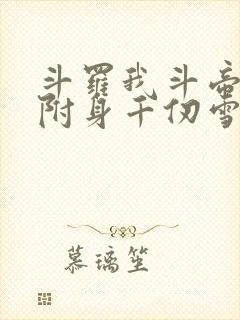 斗羅我斗帝
附身千仞雪
慕璃笙